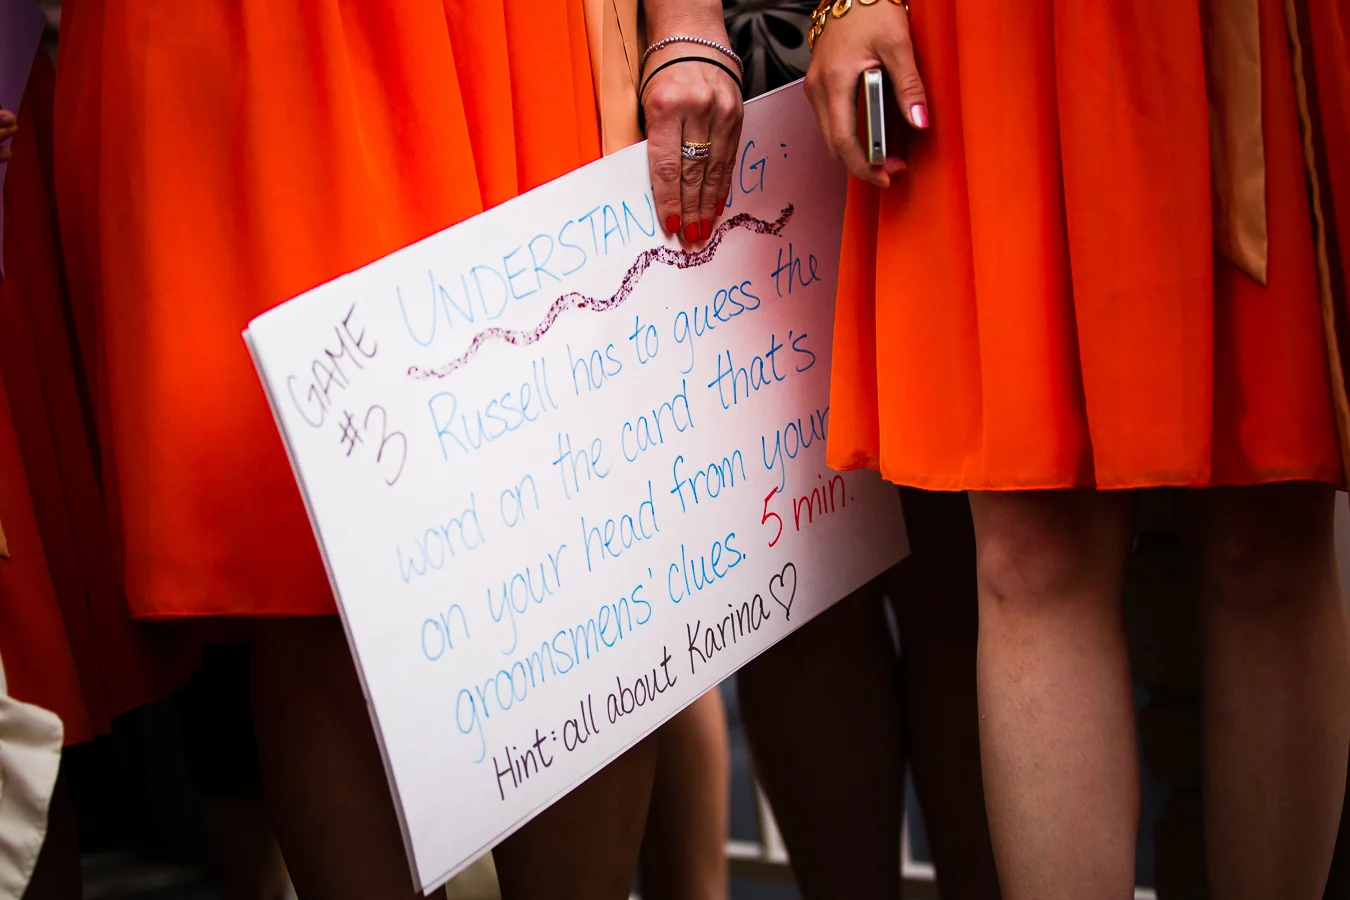 GAME
#3
UNDERSTANDING:
Russell has to guess the
word on the card that's
on your head from your
groomsmens' clues. 5 min.
Hint: all about Karina♡